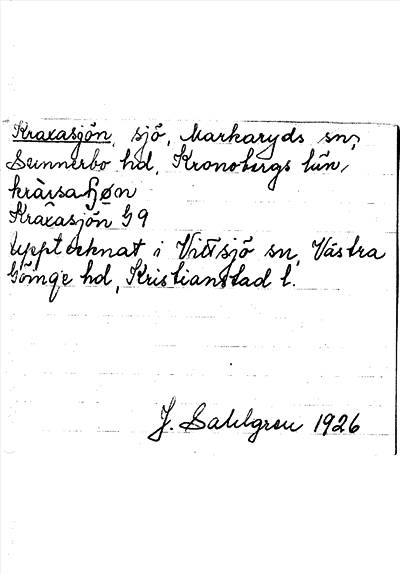 Kraxasjön, sjö, Markaryds sn,
Sunnerbo hd, Kronobergs län,
Kraxasjön G 9
Upptecknat i Vittsjö sn, Västra
Göinge hd, Kristianstad l.
J. Sahlgren 1926